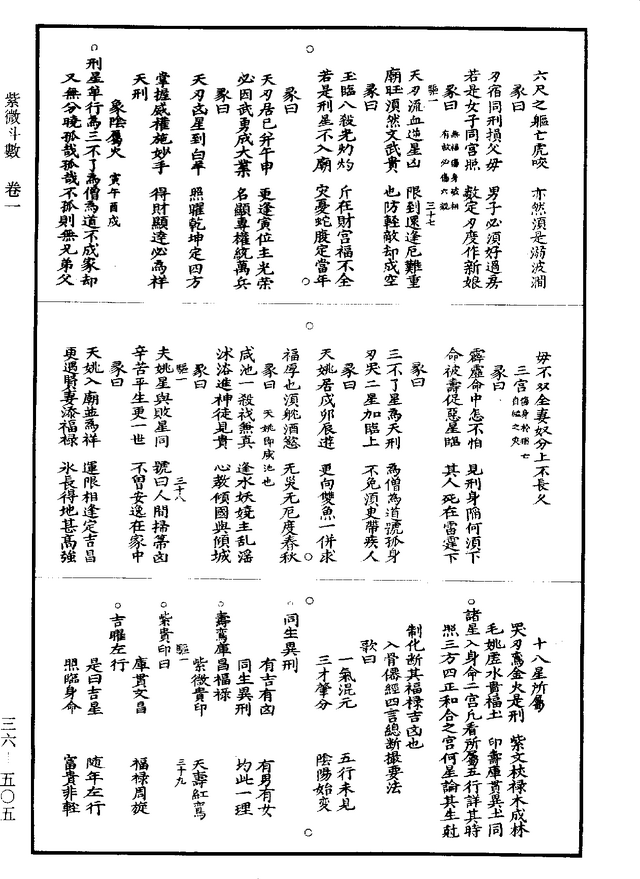 紫微斗數　卷一
六尺之軀亡虎咬　亦然須是溺波瀾
彖曰
刃宿同刑損父母　男子必須好過房
若是女子同宮照　敨定刃度作新娘
彖曰　無福傷身破相　有救必傷六親
驅一　三十七
天刃流血造星凶　限到還逢厄難重
廟旺須然文武貴　也防輕敵却成空
彖曰
玉臨八殺光灼灼　斤在財宮福不全
若是刑星不入廟　灾憂蛇腹定當年
彖曰
天刃居巳并午申　更逢寅位主光榮
必因武勇成大業　名顯專權統萬兵
彖曰
天刃凶星到白羊　照曜乾坤定四方
掌握威權施妙手　得財顯達必為祥
天刑
象陰屬火　寅午酉戌
刑星單行為三不了為僧為道不成家却
又無分曉孤哉孤哉不孤則無兄弟父
母不双全妻奴分上不長久
三宮　傷身於刑亡　自縊之灾
彖曰
霹靂命中怎不怕　見刑身陷何須下
命被壽促惡星臨　其人死在雷霆下
彖曰
三不了星為天刑　為僧為道號孤身
刃哭二星加臨上　不免須更帶疾人
天姚居戌卯辰遊　更向雙魚一併求
福厚也須躭酒慾　无災无厄度春秋
彖曰　天姚即咸池也
咸池一殺誠無真　逢水妖嬈主乱淫
沐浴進神徒見貴　心教傾國與傾城
彖曰
驅一　三十八
夫姚星與敗星同　號曰人間掃箒凶
辛苦平生更一世　不曾安逸在家中
彖曰
天姚入廟並為祥　運限相逢定吉昌
更遇貴妻添福禄　永長得地甚高強
十八星所屬
哭刃鸞金火是刑　紫文杖禄木成林
毛姚虛水貴福土　印壽庫貫異土同
諸星入身命二宮凡看所屬五行詳其時
照三方四正和合之宮何星論其生尅
制化断其福禄吉凶也
入骨僊經四言總斷撮要法
歌曰
一氣混元　五行未見
三才肇分　陰陽始変
同生異刑
有吉有凶　有男有女
同生異刑　均此一理
壽鸞庫昌福禄
紫微貴印　天壽紅鸞
驅一　三十九
紫貴印曰
庫貫文昌　福禄周旋
吉曜左行
是曰吉星　隨年左行
照臨身命　富貴非輕
三六－五〇五